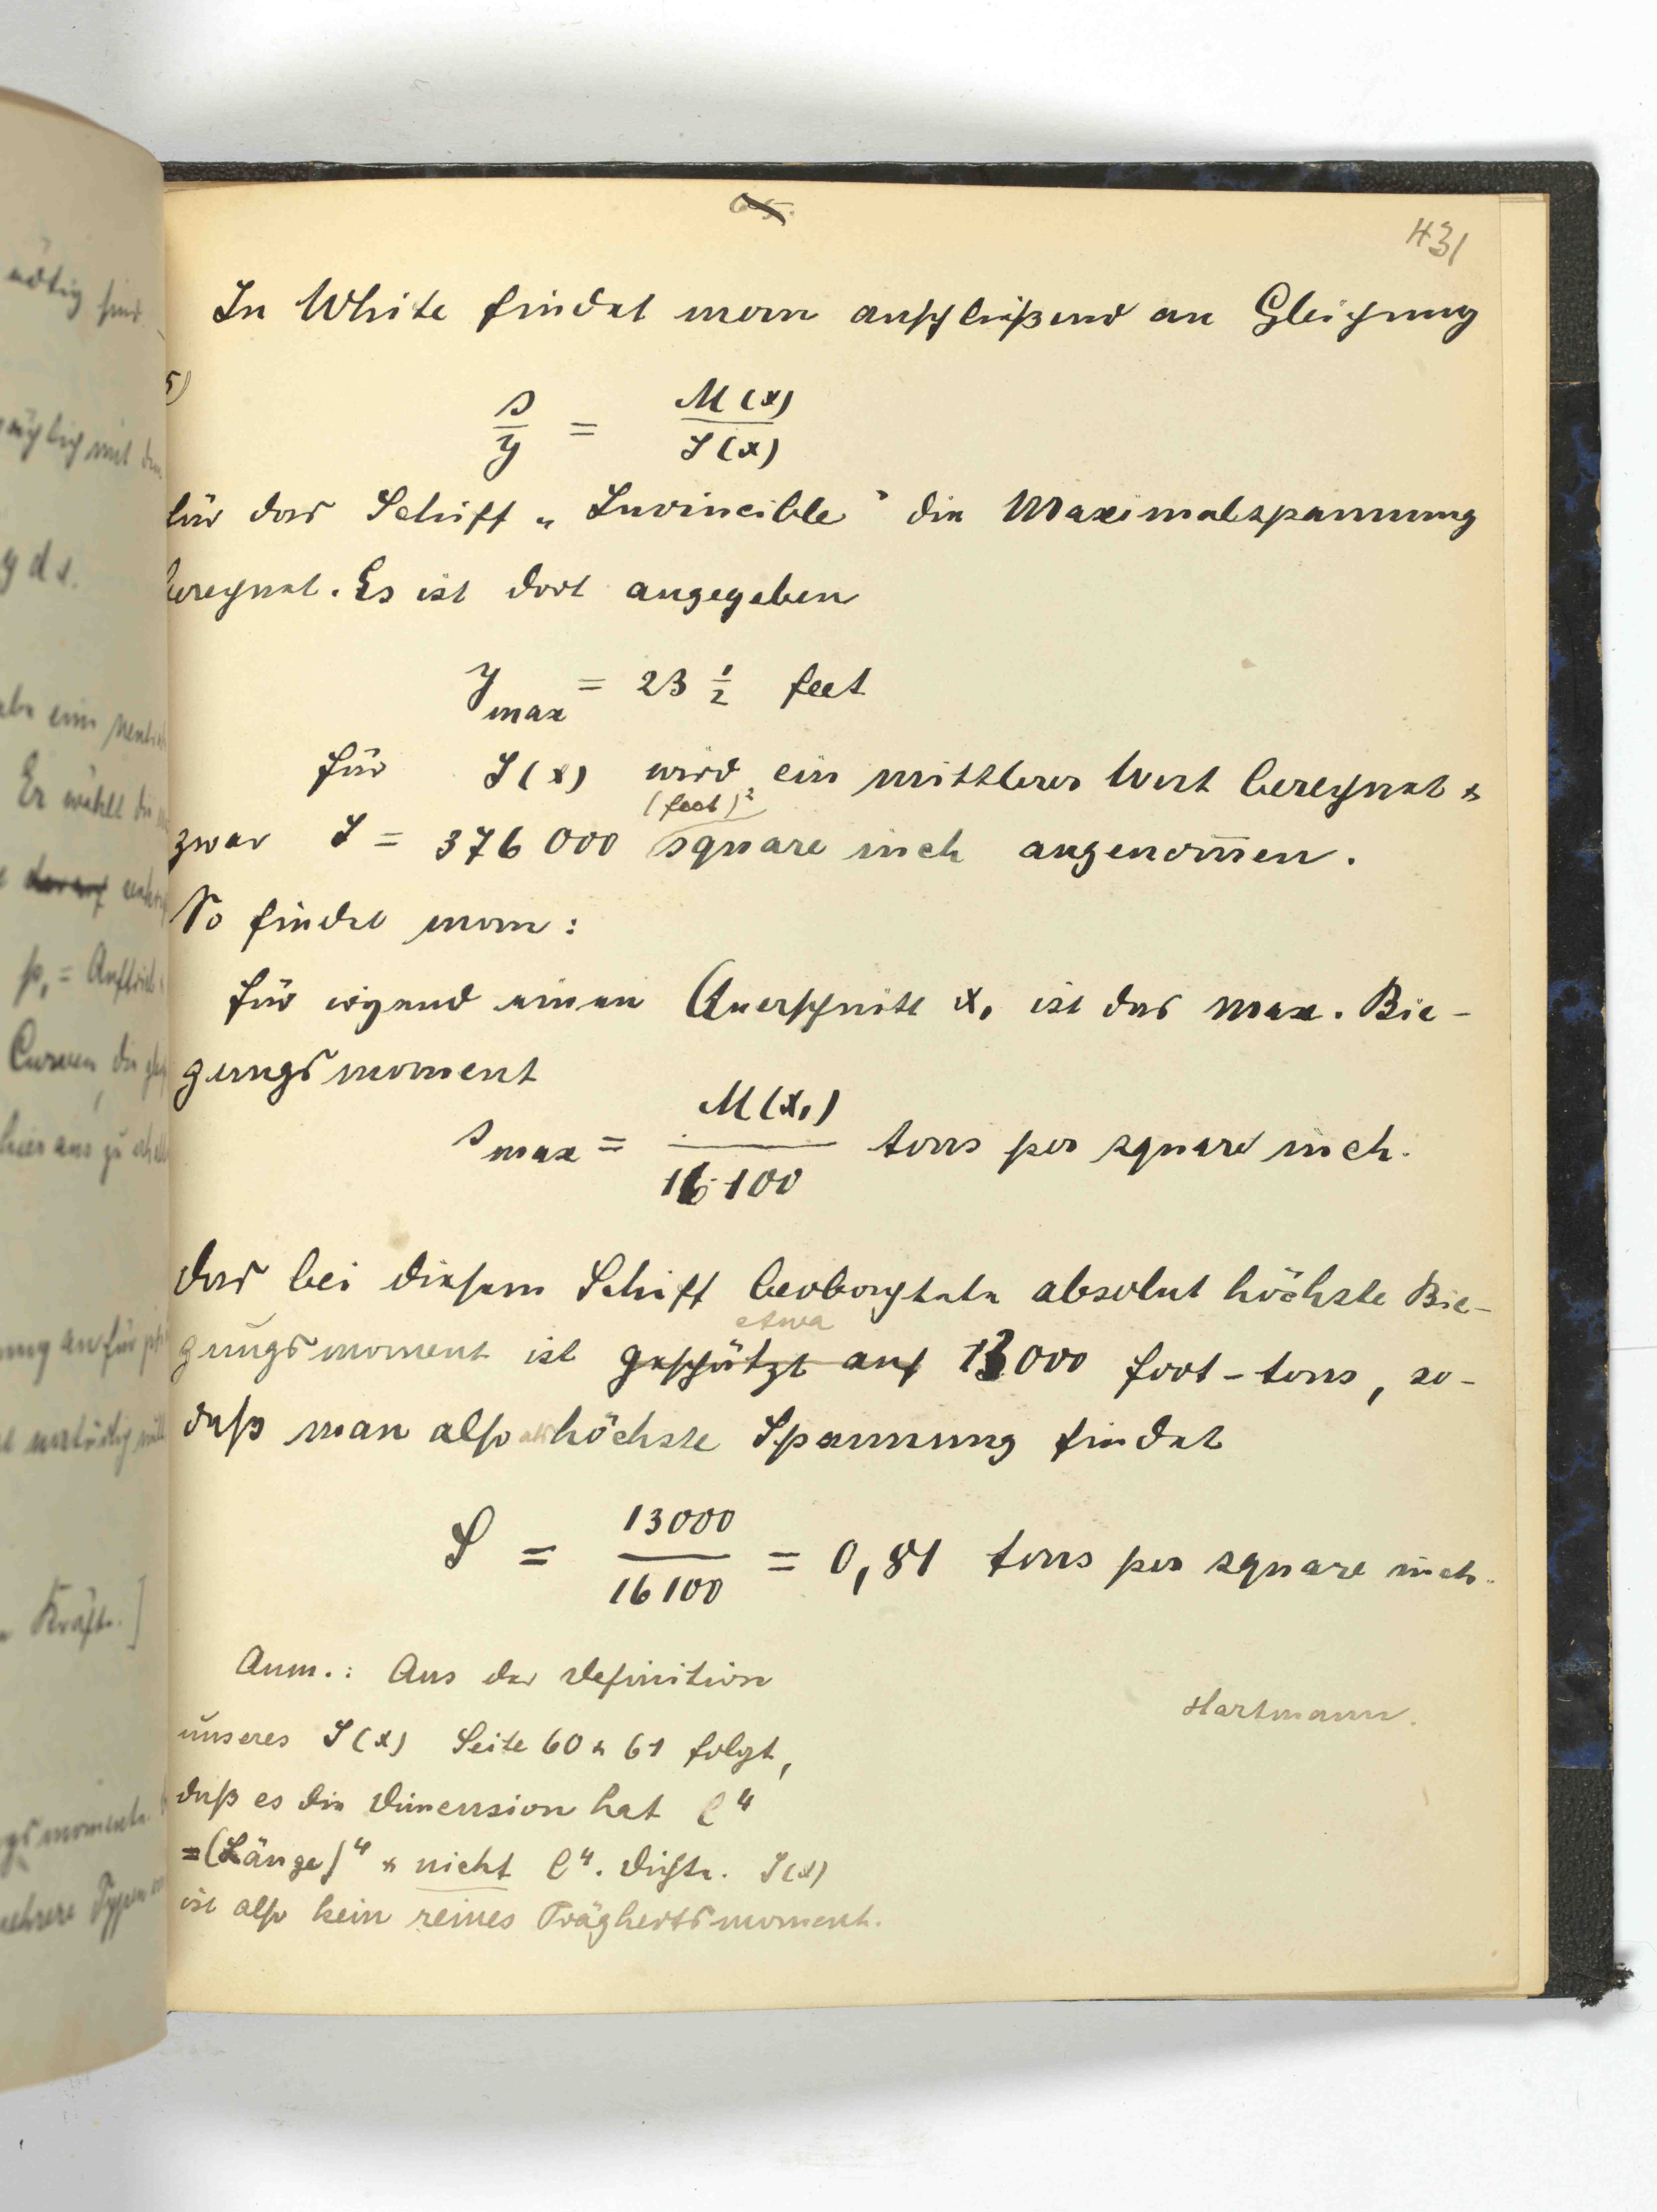 65.
431
In White findet man anschließend an Gleichung
5)
s/y = M(x)/J(x)
für das Schiff „Invincible" die Maximalspannung
berechnet. Es ist dort angegeben
y max = 23 1/2 feet
für J(x) wird ein mittlerer Wert berechnet &
(feet)²
zwar J = 376 000 square inch angenom̅en.
So findet man:
für irgend einen Querschnitt x₁ ist das max. Bie-
gungsmoment
s max = M(x₁)/16 100 tons per square inch.
das bei diesem Schiff beobachtete absolut höchste Bie-
etwa
gungsmoment ist geschätzt auf 13000 foot-tons, so-
daß man also als höchste Spannung findet
S = 13000/16100 = 0,81 tons per square inch.
Anm.: Aus der Definition
unseres J(x) Seite 60 & 61 folgt,
daß es die Dimension hat l⁴
=(Länge)⁴ & nicht l⁴. Dichte. J(x)
ist also kein reines Trägheitsmoment.
Hartmann.
nötig sind.
y ds.
Er wählt die
p₁ = Auftrieb
Curven, die
hieraus zu
Kräfte.]
mehrere Typen